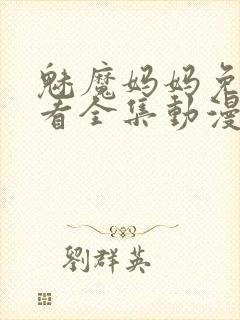 魅魔妈妈免
看全集動漫
劉群英